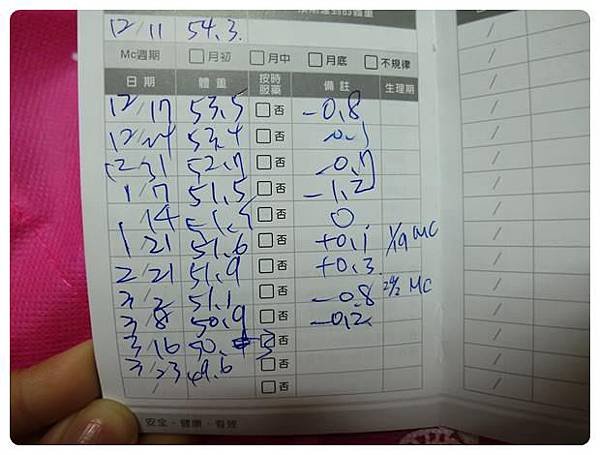 12/11 54.3
Mc週期 □月初 □月中 □月底 □不規律
日期 體重 按時服藥 備註 生理期
12/17 53.5 □否 -0.8
12/24 53.4 □否 -0.1
12/31 52.7 □否 -0.7
1/7 51.5 □否 -1.2
1/14 51.5 □否 0
1/21 51.6 □否 +0.1 1/19 MC
2/21 51.9 □否 +0.3
3/2 51.1 □否 -0.8 MC
3/8 50.9 □否 -0.2
3/16 50. □否
3/23 49.6 □否
/ □否
安全・健康・有效